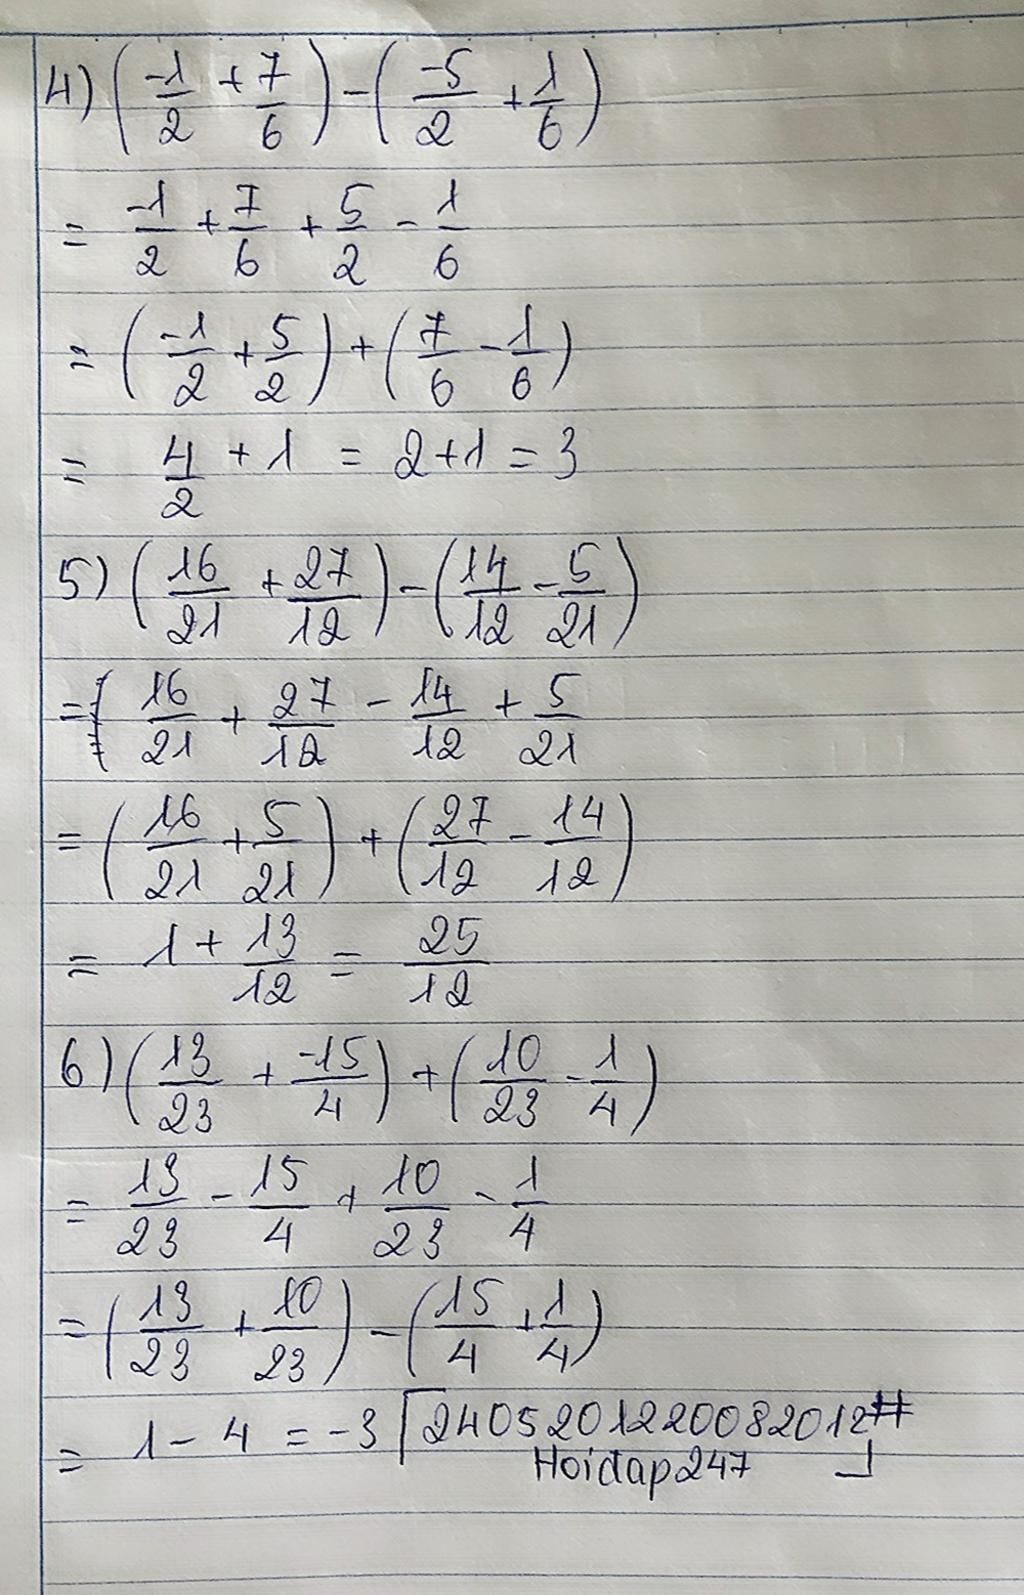 4) (-1/2 + 7/6) - (-5/2 + 1/6)
= -1/2 + 7/6 + 5/2 - 1/6
= (-1/2 + 5/2) + (7/6 - 1/6)
= 4/2 + 1 = 2 + 1 = 3
5) (16/21 + 27/12) - (14/12 - 5/21)
= 16/21 + 27/12 - 14/12 + 5/21
= (16/21 + 5/21) + (27/12 - 14/12)
= 1 + 13/12 = 25/12
6) (13/23 + -15/4) + (10/23 - 1/4)
= 13/23 - 15/4 + 10/23 - 1/4
= (13/23 + 10/23) - (15/4 + 1/4)
= 1 - 4 = -3 2405201220082012#
Hoidap247